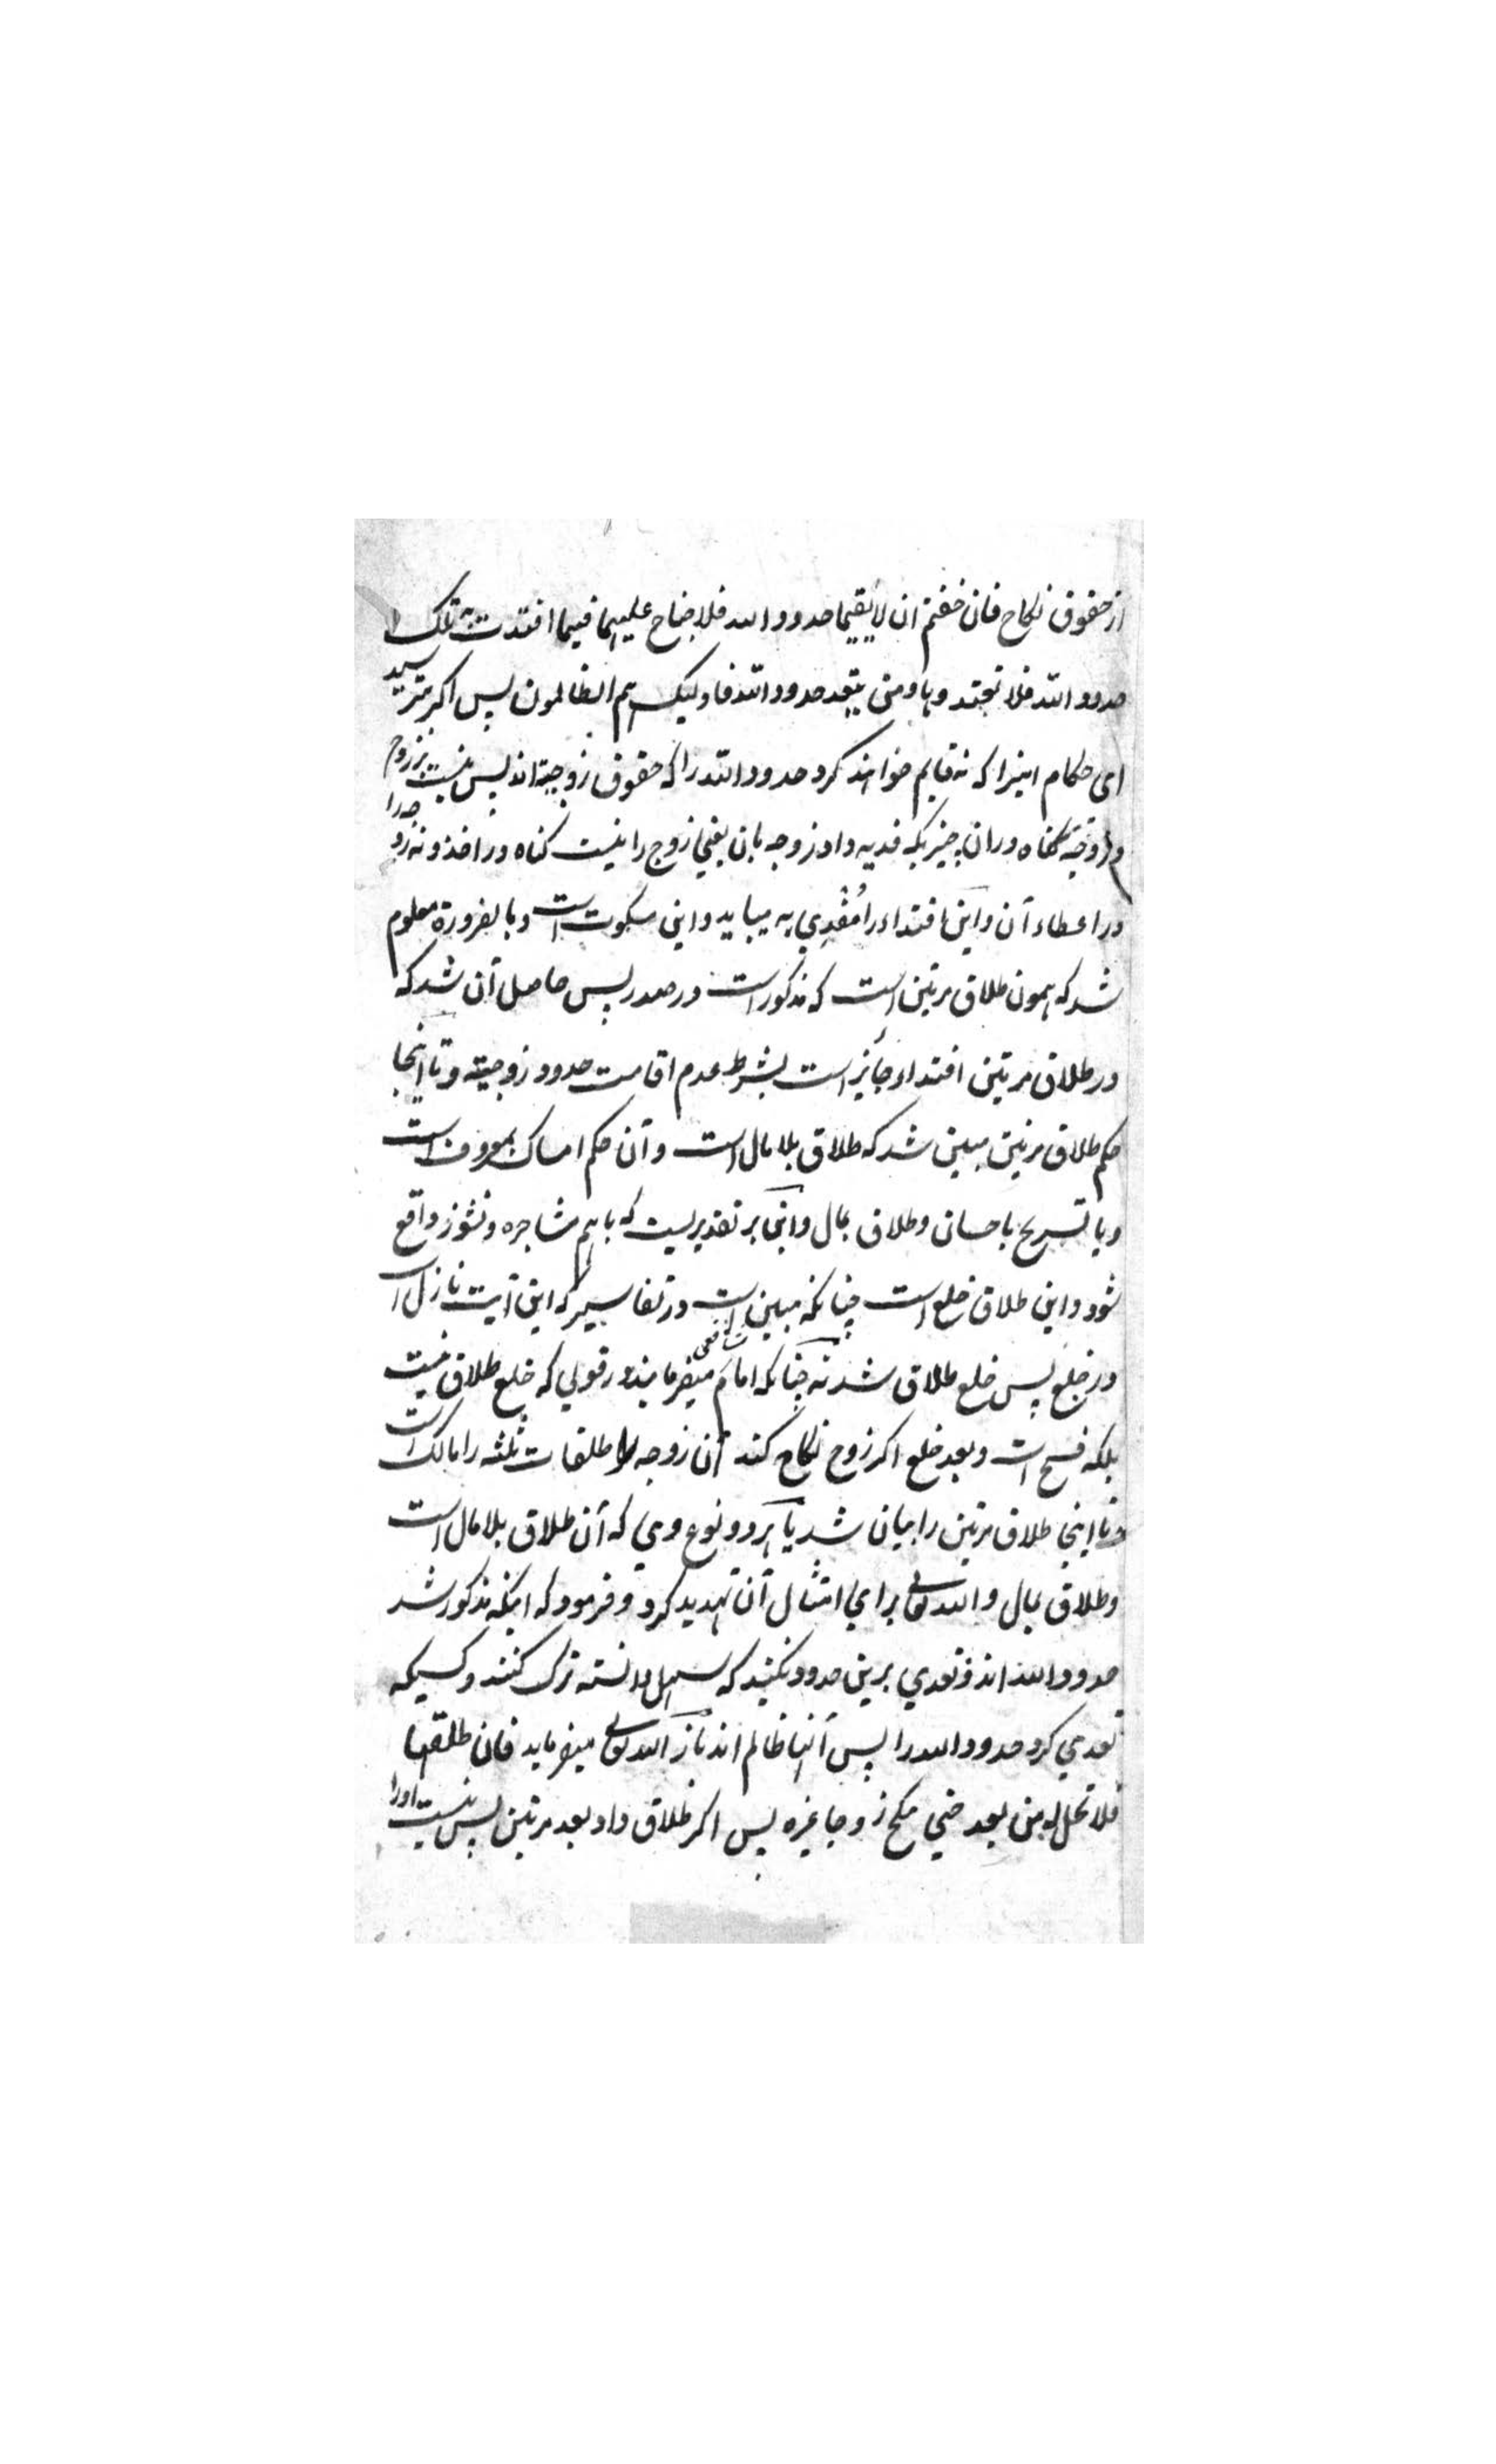 از حقوق نکاح فان خفتم ان لا یقیما حدود الله فلا جناح علیهما فیما افتدت به تلک
حدود الله فلا تعتدوها و من یتعد حدود الله فاولیک هم الظالمون پس اکر بترسید
ای حکام اینرا که نه قایم خواهند کرد حدود الله را که حقوق زوجیة اند پس نیست بر زوج
و زوجة کناه دران چیزیکه فدیه داد زوجه بان یعنی زوج را نیست کناه در اخذ و نه زوجه را
در اعطاء آن و این افتداء را مُفْدِی به میباید و این سکوت است و بالضرورة معلوم
شد که همون طلاق مرتین است که مذکور است در صدر پس حاصل آن شد که
در طلاق مرتین افتداء جائز است بشرط عدم اقامت حدود زوجیته و تا اینجا
حکم طلاق مرتین مبین شد که طلاق بلا مال است و آن حکم امساک بمعروف است
و یا تسریح باحسان و طلاق بمال و این بر تقدیریست که باهم مشاجره و نشوز واقع
شود و این طلاق خلع است چنانکه مبین است در تفاسیر که این آیت نازل است
در خلع پس خلع طلاق شد نه چنانکه امام شافعی میفرمایند در قولی که خلع طلاق نیست
بلکه فسخ است و بعد خلع اکر زوج نکاح کند آن زوجه را طلقات ثلثه را مالک است
و تا اینجا طلاق مرتین را بیان شد با هر دو نوع وی که آن طلاق بلا مال است
و طلاق بمال و الله تعالی برای امتثال آن تهدید کرد و فرمود که اینکه مذکور شد
حدود الله اند و تعدی برین حدود نکنید که سهل دانسته ترک کنند و کسیکه
تعدی کرد حدود الله را پس آنها ظالم اند باز الله تعالی میفرماید فان طلقها
فلا تحل له من بعد حتی تنکح زوجا غیره پس اکر طلاق داد بعد مرتین پس نیست اورا